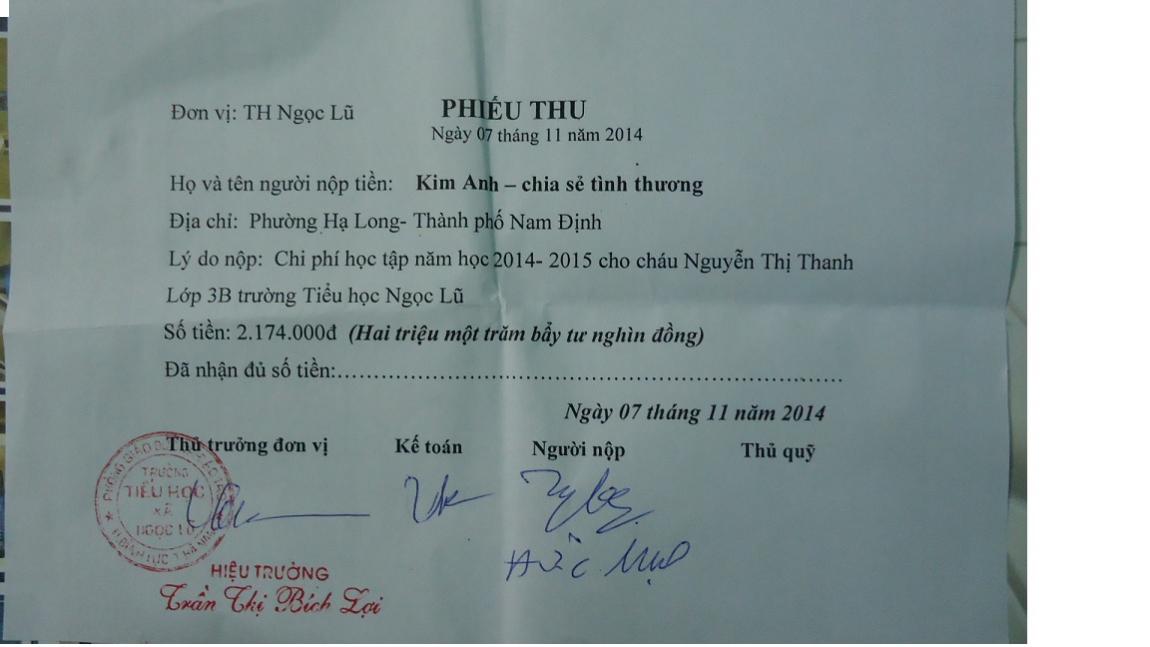 Đơn vị: TH Ngọc Lũ
PHIẾU THU
Ngày 07 tháng 11 năm 2014
Họ và tên người nộp tiền: Kim Anh – chia sẻ tình thương
Địa chỉ: Phường Hạ Long- Thành phố Nam Định
Lý do nộp: Chi phí học tập năm học 2014- 2015 cho cháu Nguyễn Thị Thanh
Lớp 3B trường Tiểu học Ngọc Lũ
Số tiền: 2.174.000đ (Hai triệu một trăm bẩy tư nghìn đồng)
Đã nhận đủ số tiền:……………………………………………………………………
Ngày 07 tháng 11 năm 2014
Thủ trưởng đơn vị Kế toán Người nộp Thủ quỹ
TRƯỜNG
TIỂU HỌC
XÃ
NGỌC LŨ
HIỆU TRƯỞNG
Trần Thị Bích Lợi